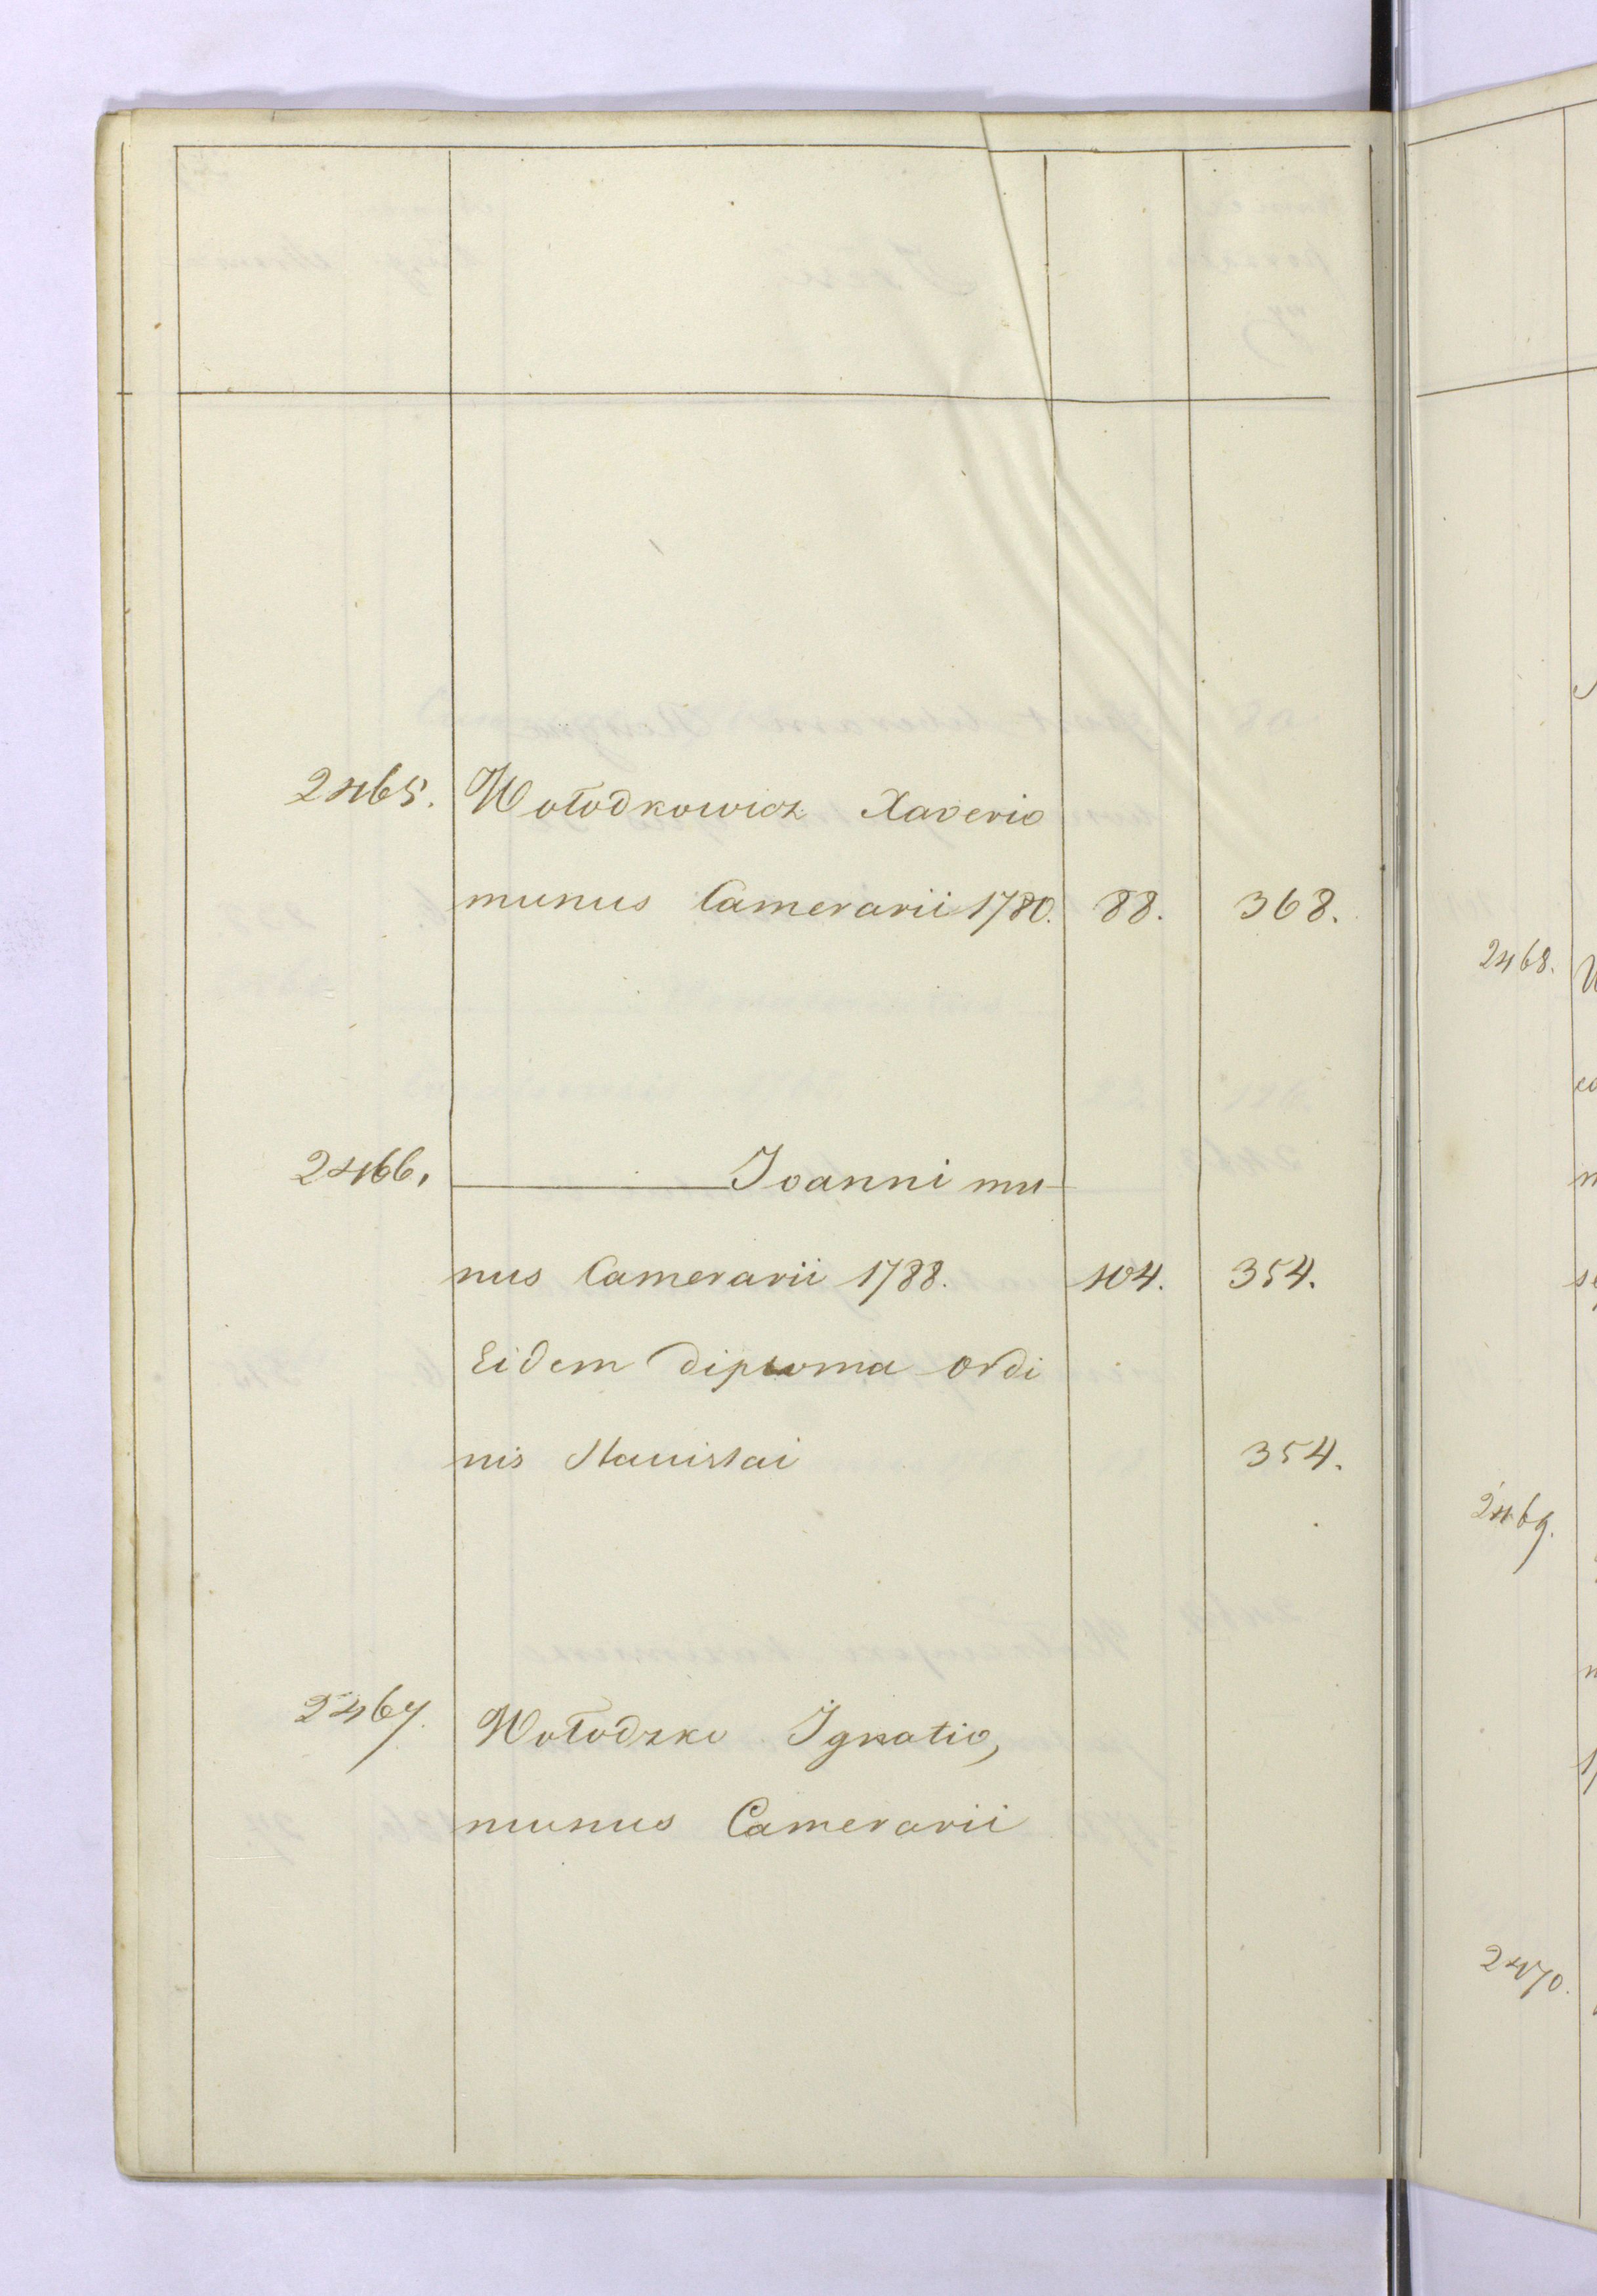 2465. Wołodkowicz Xaverio
munus Camerarii 1780. 88. 368.
2466. ——— Joanni mu-
nus Camerarii 1788. 104. 354.
Eidem diploma ordi
nis Stanislai 354.
2467. Wołodzko Ignatio,
munus Camerarii
2468.
2469.
2470.